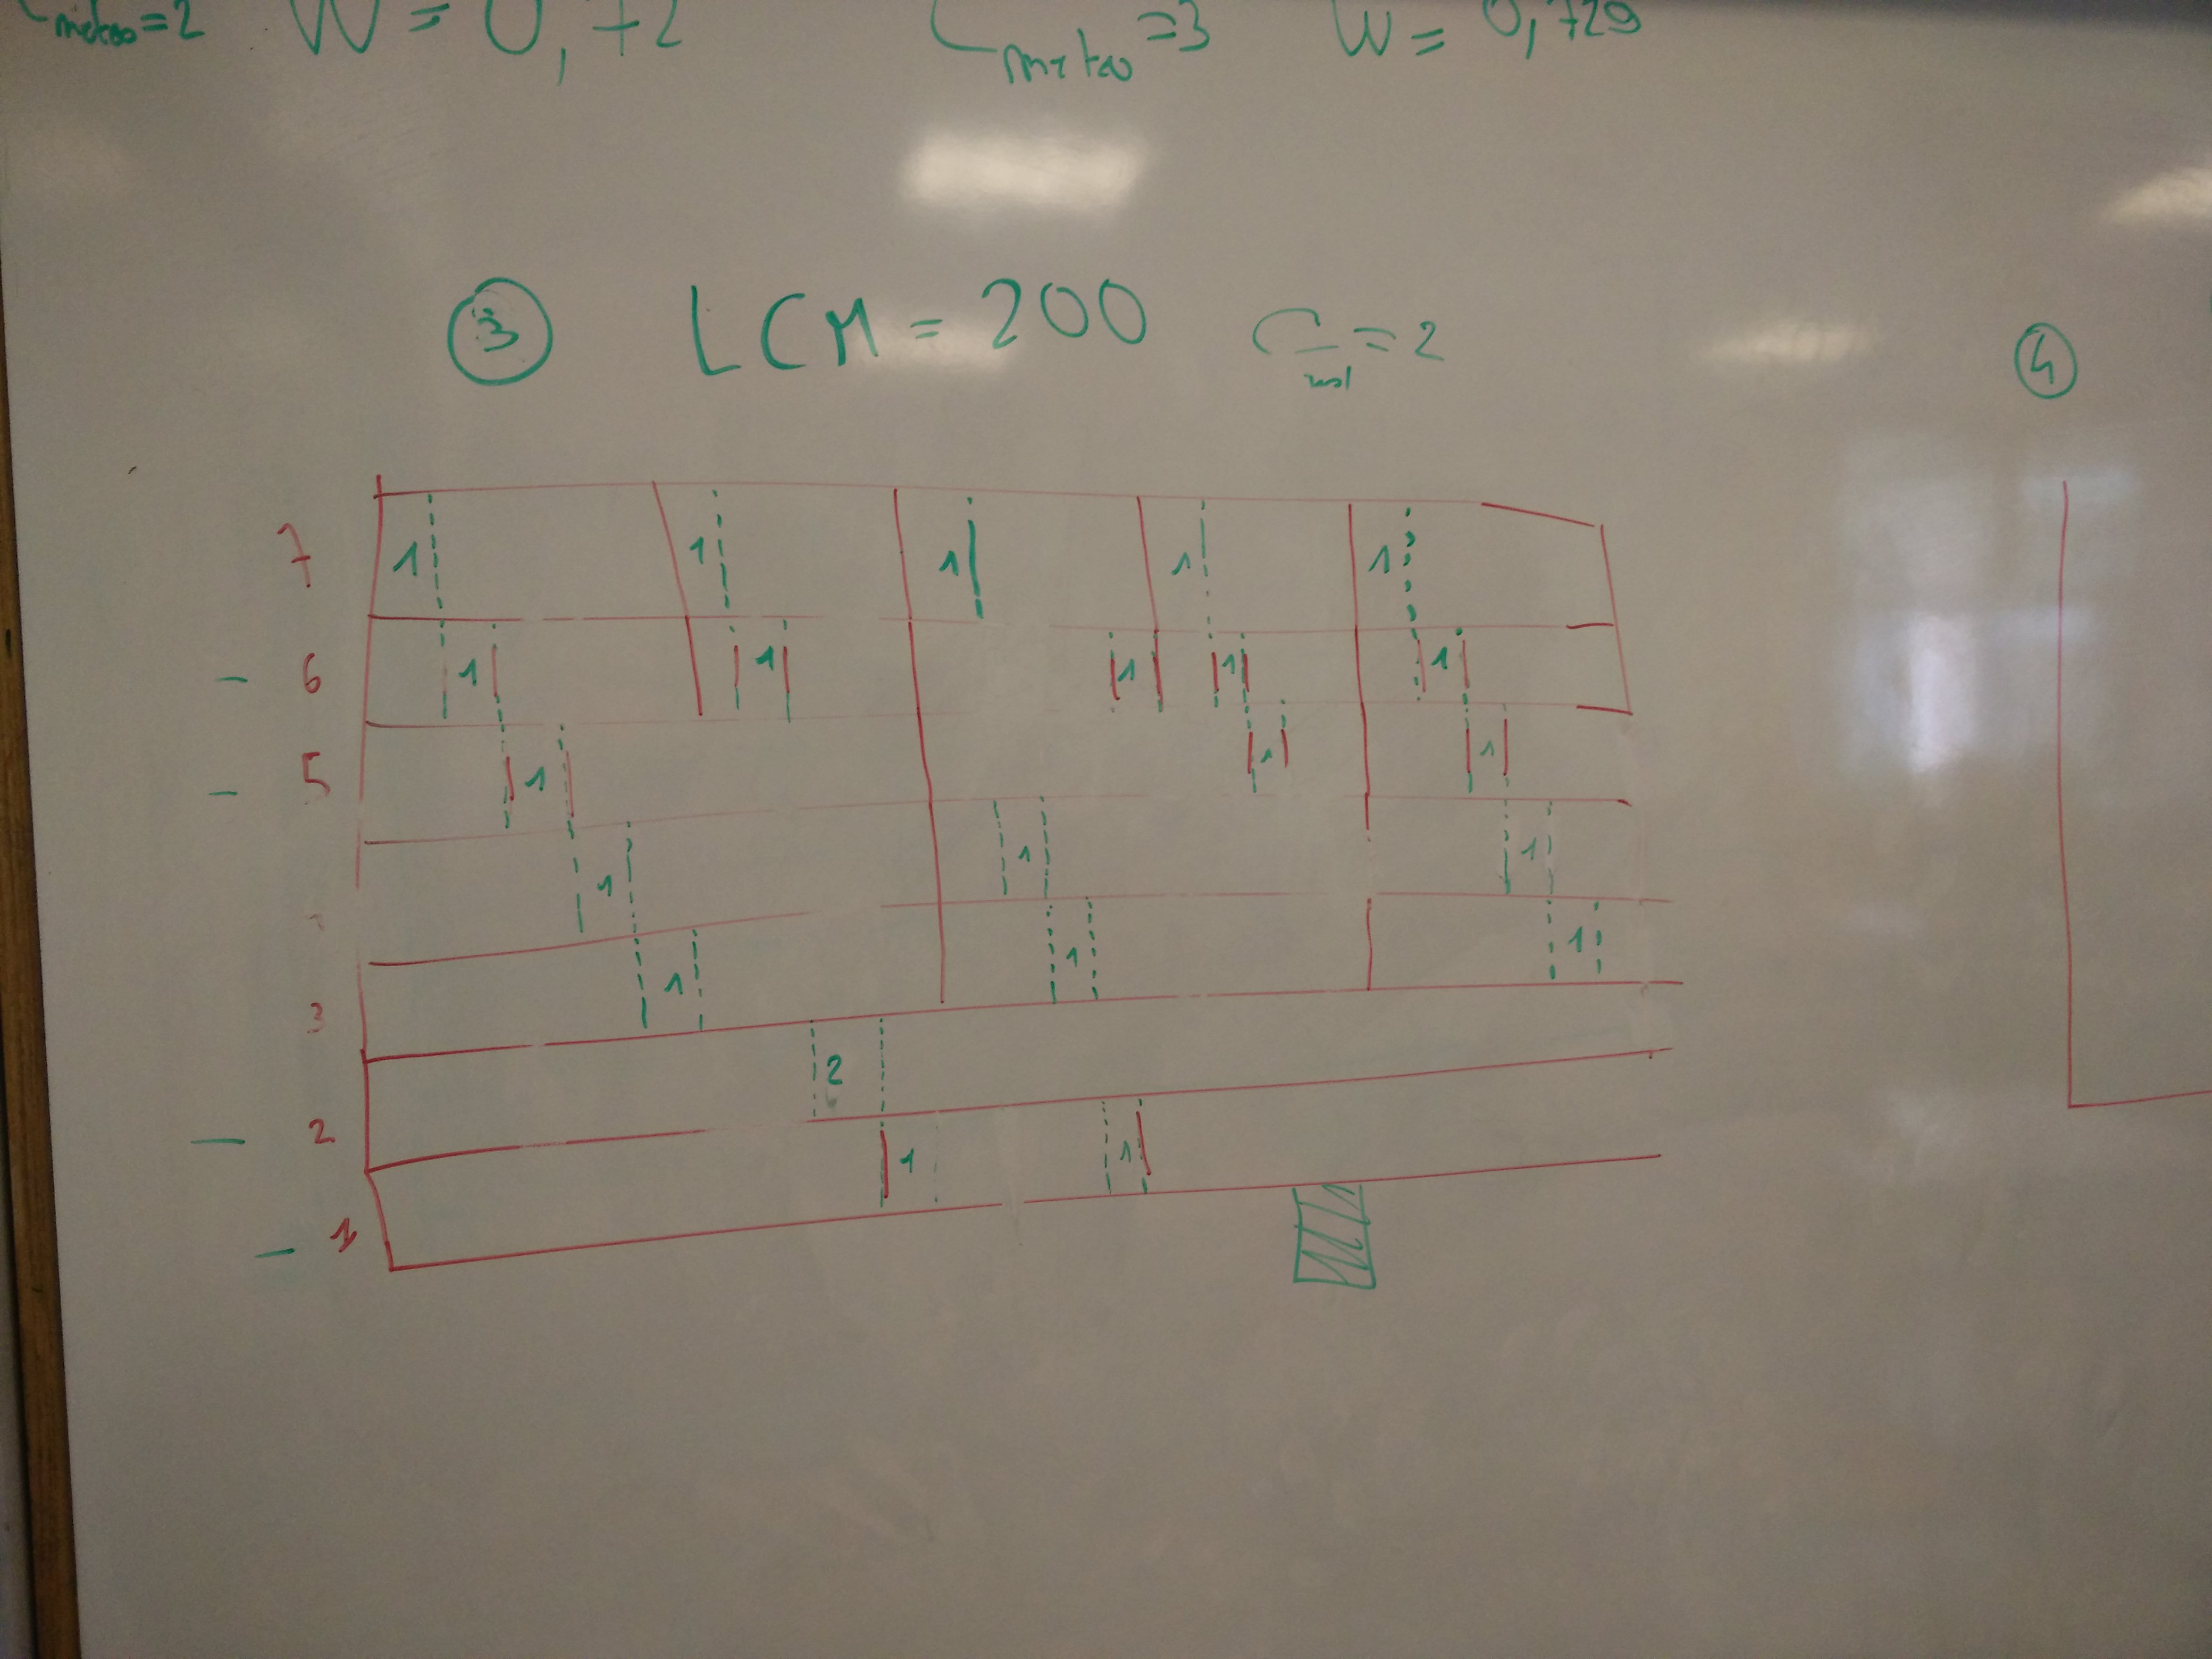 C meteo = 2 W = 0,72 C meteo = 3 W = 0,729
3 LCM = 200 = 2 4
7 1 1 1 1 1
- 6 1 1 1 1 1
- 5 1 1 1
1 1 1
3 1 1 1
- 2 2
- 1 1 1